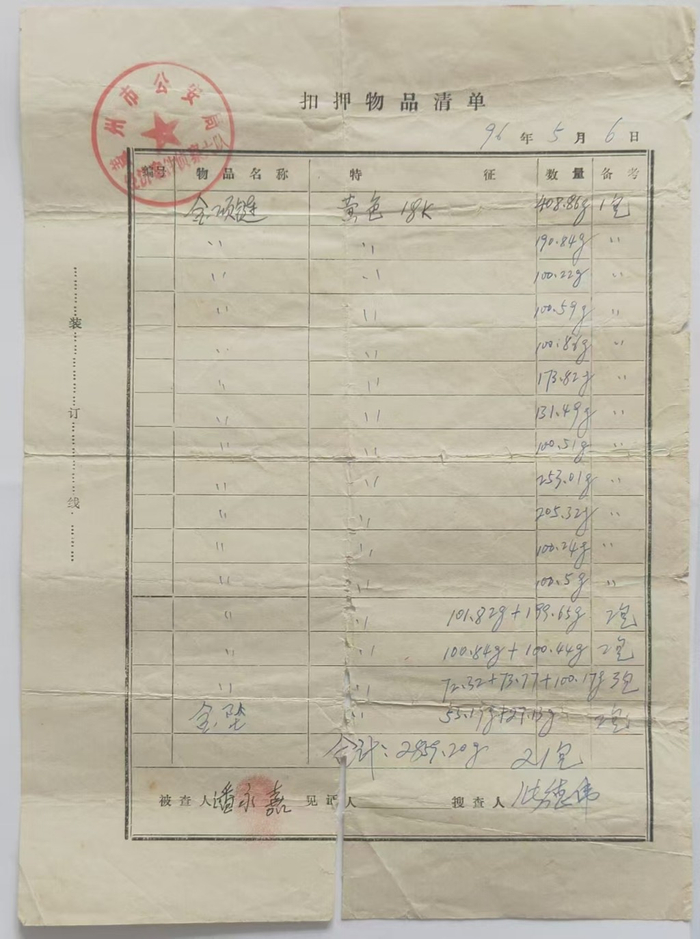 扣押物品清单
州市公安局
96年5月6日
编号 物品名称 特征 数量 备考
金项链 黄色 18K 408.86g 1包
〃 〃 190.84g 〃
〃 〃 100.22g 〃
〃 〃 100.59g 〃
〃 〃 100.86g 〃
〃 〃 173.82g 〃
〃 〃 131.49g 〃
〃 〃 100.51g 〃
〃 〃 253.01g 〃
〃 〃 205.32g 〃
〃 〃 100.24g 〃
〃 〃 100.5g 〃
〃 〃 101.82g+199.65g 2包
〃 〃 100.84g+100.44g 2包
〃 〃 72.32+73.77+100.17g 3包
金 〃 2包
合计：2859.20g 21包
被查人 潘永嘉 见证人 搜查人
装订线